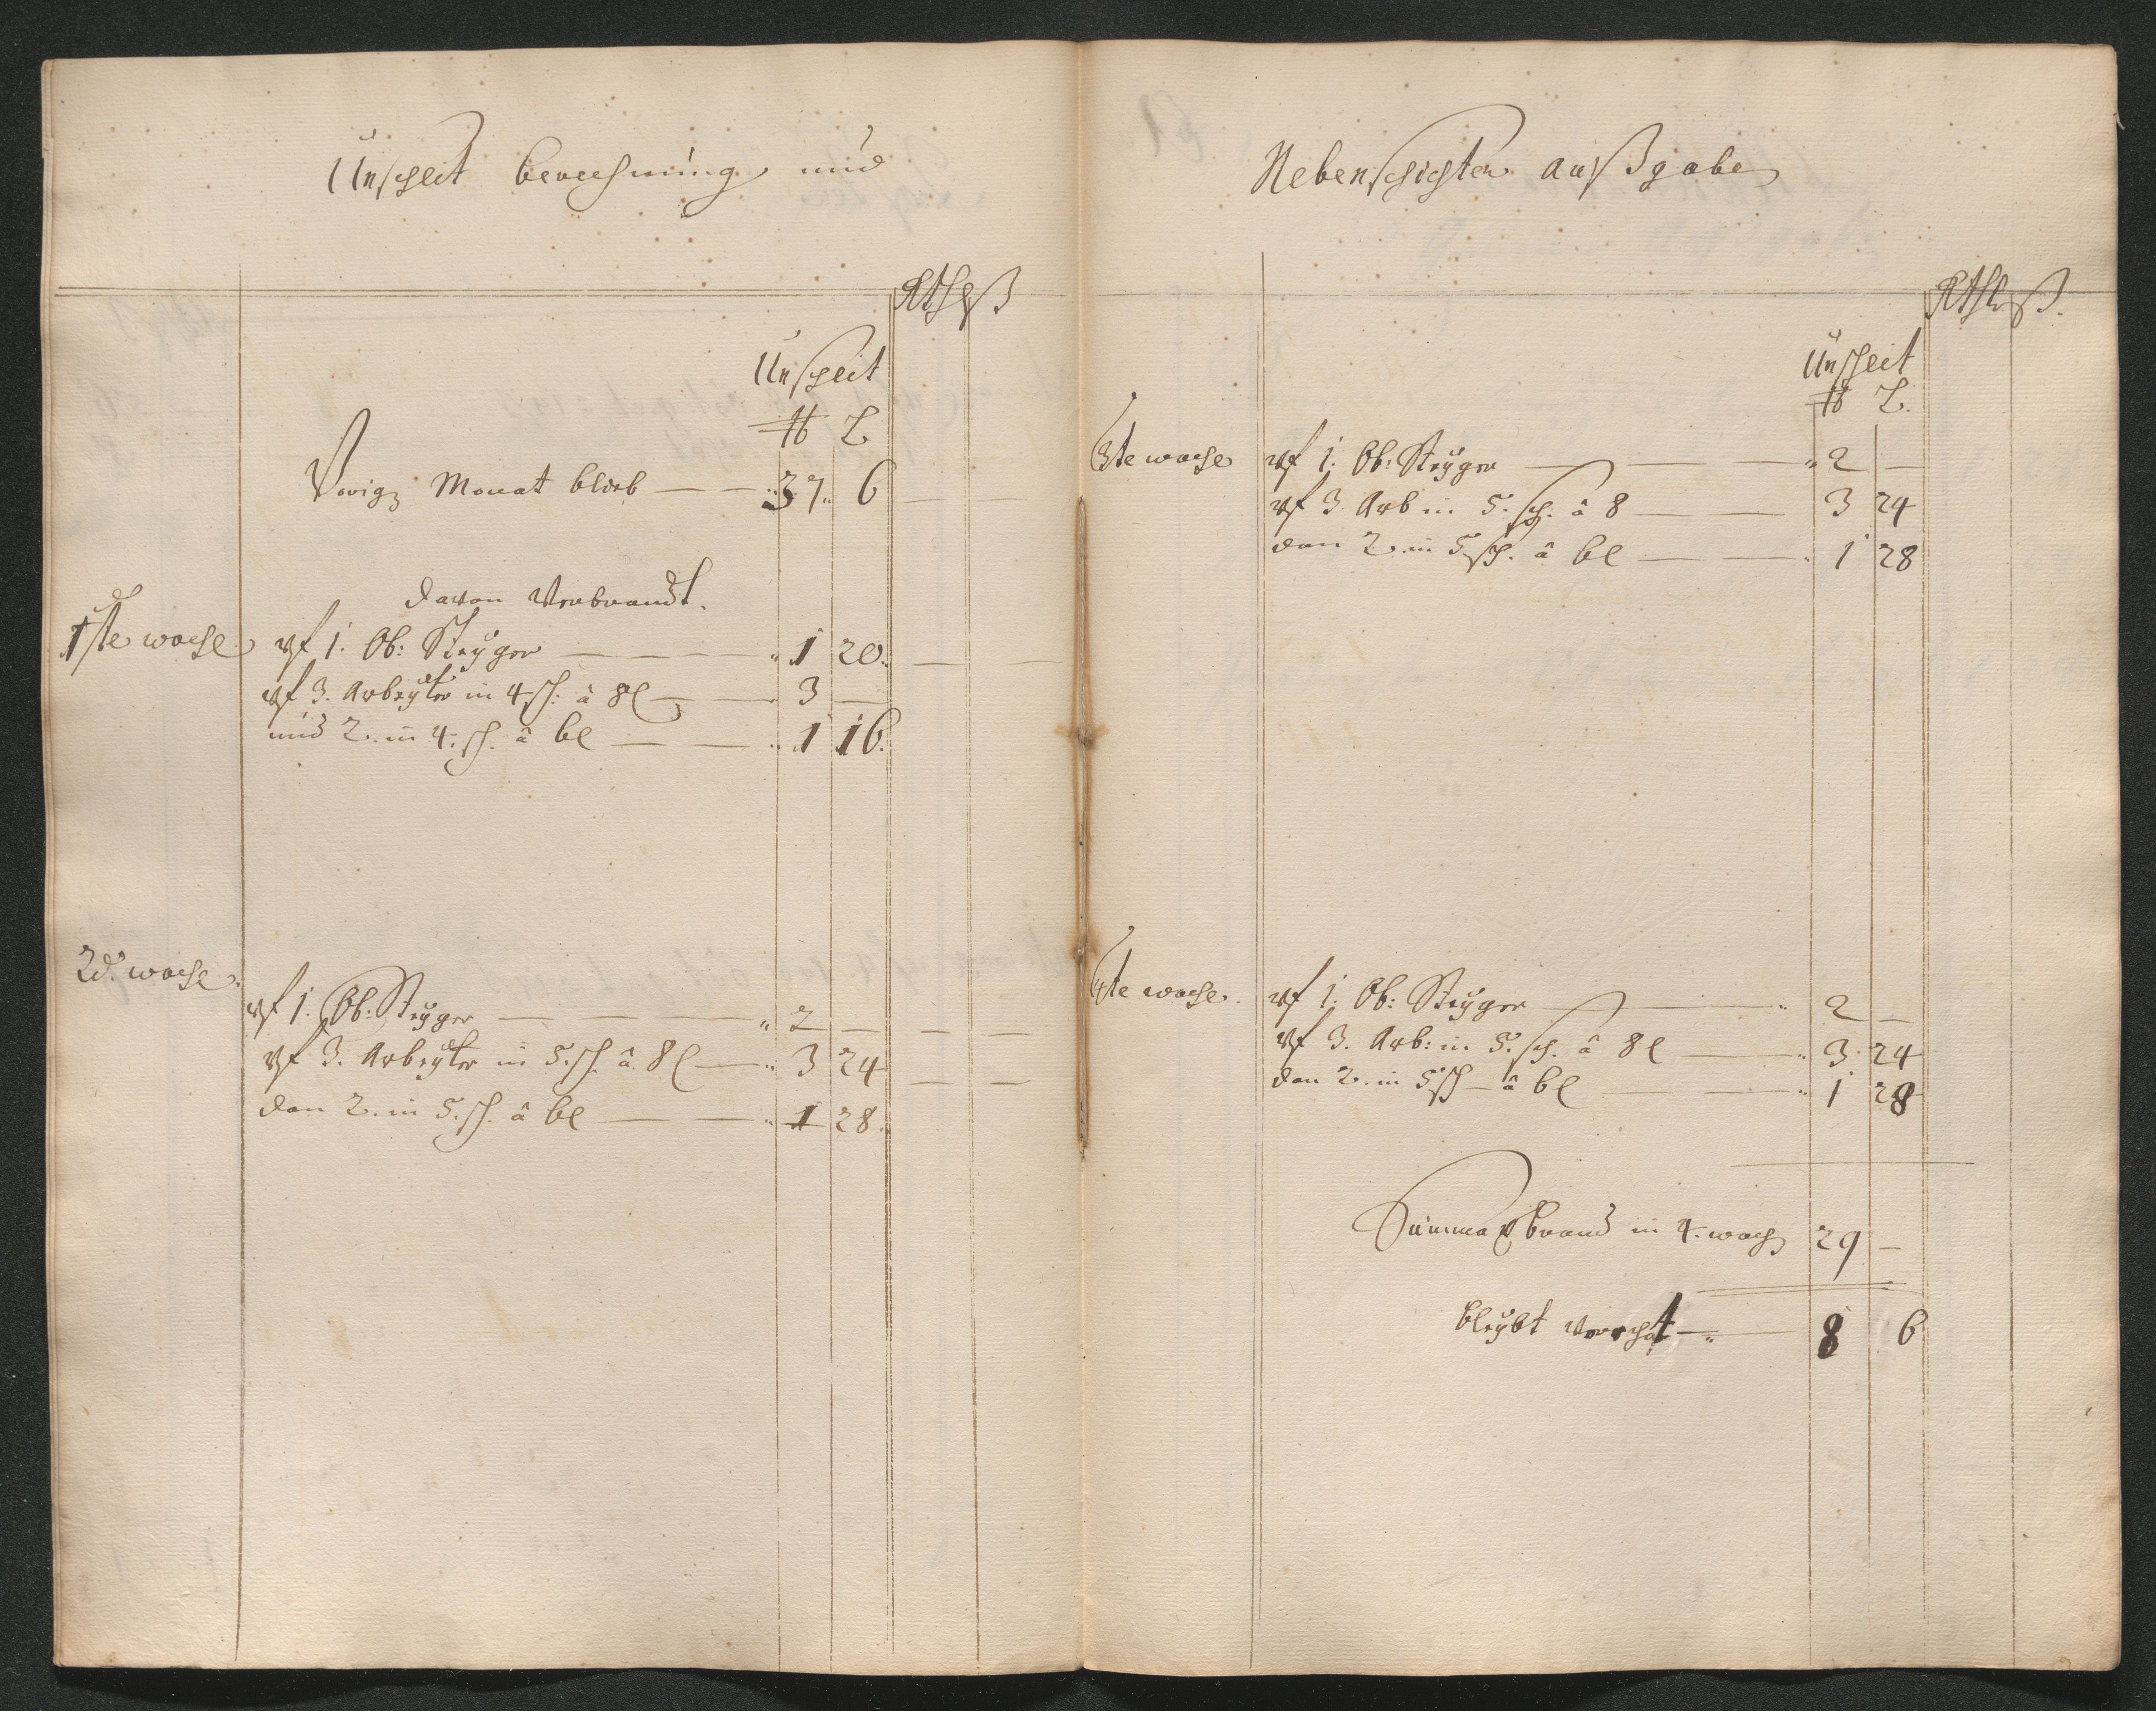 Unschlit berechnung und
Rthlß
Unschlit
℔ L.
Vorig Monat blieb — — 37 6
davon Verbrandt.
1ste woche vf 1. Ob: Steyger — — — 1 20
vf 3. Arbeyter in 4 sch: â 8 l — 3 —
und 2. in 4. sch. â 6 l — — 1 16.
2d. woche
vf 1. Ob: Steyger — — — 2 —
vf 3. Arbeyter in 5. sch. â 8 l — 3 24
den 2. in 5. sch. â 6 l — — 1 28.
Nebenschichten außgabe
Rthlß.
Unschlit
℔ L.
3te woche vf 1. Ob: Steyger — — 2 —
vf 3. Arb in 5. sch. â 8 — — 3 24
den 2. in 5 sch. â 6 l — — 1 28
4te woche. vf 1. Ob: Steyger — — 2 —
vf 3. Arb: in 5. sch. â 8 l — 3 24
den 2. in 5 sch â 6 l — — 1 28
Summa Vbrand in 4. woch 29 —
bleybt — 8 6